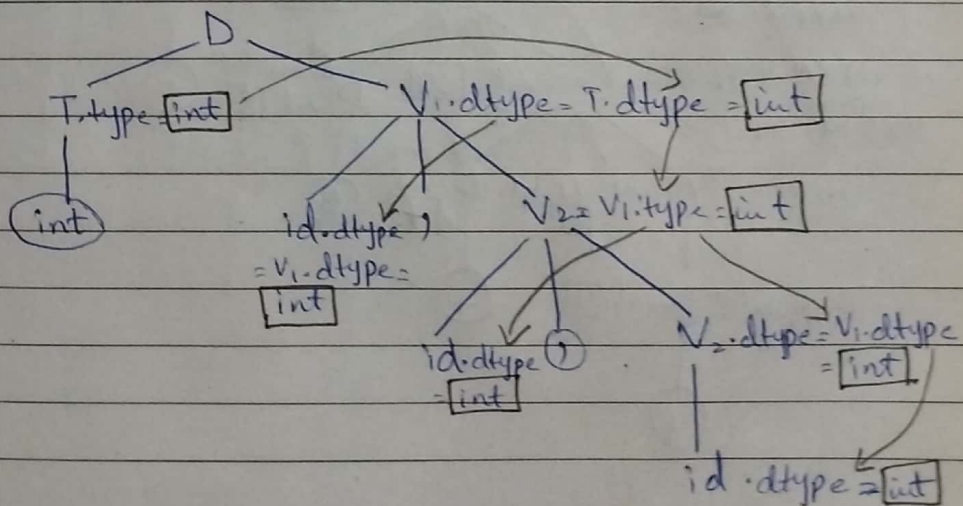 D
T.type=int V₁.dtype = T.dtype = int
int
id.dtype , V₂ = V₁.type = int
= V₁.dtype =
int
id.dtype , V₂.dtype = V₁.dtype
= int = int
id.dtype = int